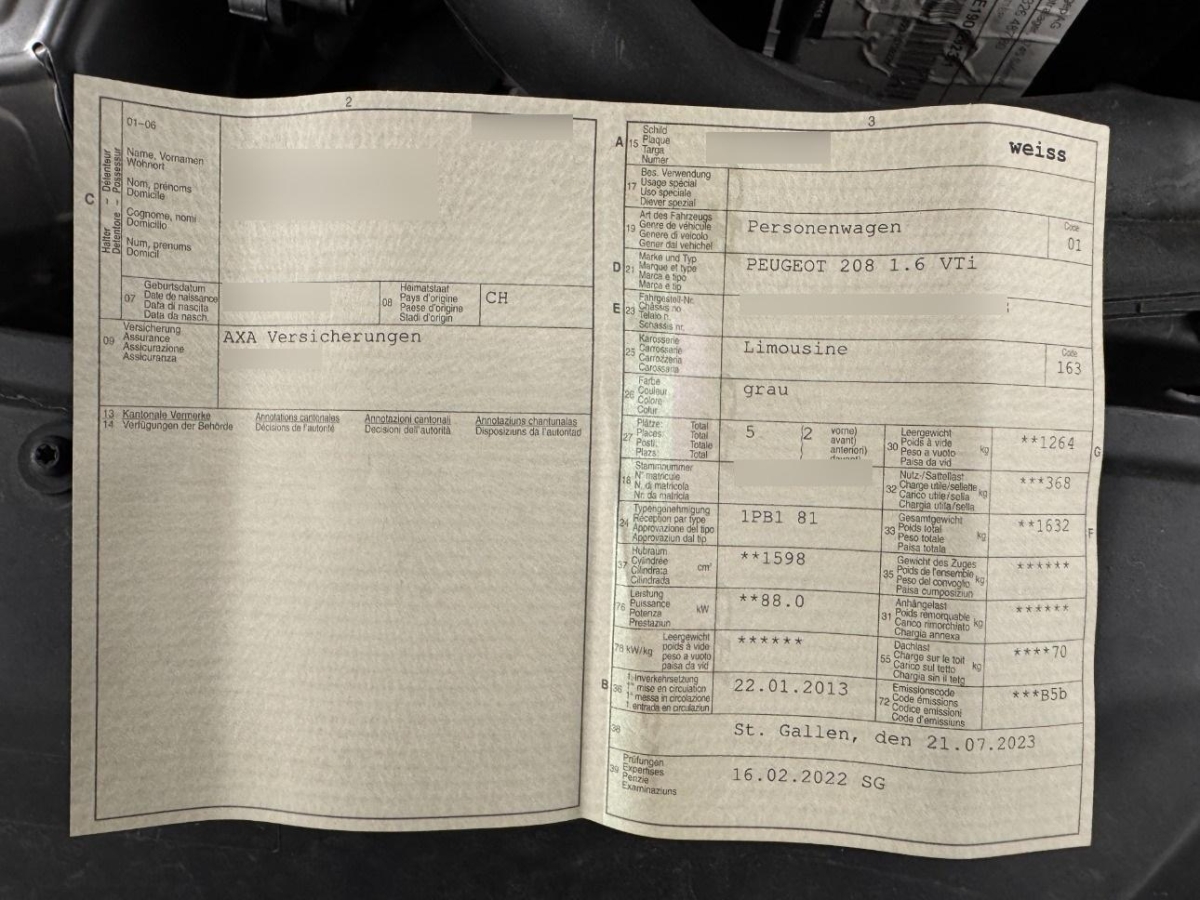 2
01-06
C
Halter - Détenteur
Detentore - Possessur
Name, Vornamen
Wohnort
Nom, prénoms
Domicile
Cognome, nomi
Domicilio
Num, prenums
Domicil
07
Geburtsdatum
Date de naissance
Data di nascita
Data da nasch.
08
Heimatstaat
Pays d'origine
Paese d'origine
Stadi d'origin
CH
09
Versicherung
Assurance
Assicurazione
Assicuranza
AXA Versicherungen
13 Kantonale Vermerke
14 Verfügungen der Behörde
Annotations cantonales
Décisions de l'autorité
Annotazioni cantonali
Decisioni dell'autorità
Annotaziuns chantunalas
Disposiziuns da l'autoritad
3
A 15
Schild
Plaque
Targa
Numer
weiss
17
Bes. Verwendung
Usage spécial
Uso speciale
Diever spezial
19
Art des Fahrzeugs
Genre de véhicule
Genere di veicolo
Gener dal vehichel
Personenwagen
Code
01
D 21
Marke und Typ
Marque et type
Marca e tipo
Marca e tip
PEUGEOT 208 1.6 VTi
E 23
Fahrgestell-Nr.
Châssis no
Telaio n.
Schassis nr.
25
Karosserie
Carrosserie
Carrozzeria
Carossaria
Limousine
Code
163
26
Farbe
Couleur
Colore
Colur
grau
27
Plätze: Total
Places: Total
Posti: Totale
Plazs: Total
5 (2
vorne)
avant)
anteriori)
30
Leergewicht
Poids à vide
Peso a vuoto
Paisa da vid
kg
**1264
G
18
Stammnummer
N° matricule
N. di matricola
Nr. da matricla
32
Nutz-/Sattellast
Charge utile/sellette
Carico utile/sella
Chargia utila/sella
kg
***368
24
Typengenehmigung
Réception par type
Approvazione del tipo
Approvaziun dal tip
1PB1 81
33
Gesamtgewicht
Poids total
Peso totale
Paisa totala
kg
**1632
F
37
Hubraum
Cylindrée
Cilindrata
Cilindrada
cm³
**1598
35
Gewicht des Zuges
Poids de l'ensemble
Peso del convoglio
Paisa cumposiziun
kg
******
76
Leistung
Puissance
Potenza
Prestaziun
kW
**88.0
31
Anhängelast
Poids remorquable
Carico rimorchiato
Chargia annexa
kg
******
78 kW/kg
Leergewicht
poids à vide
peso a vuoto
paisa da vid
******
55
Dachlast
Charge sur le toit
Carico sul tetto
Chargia sin il tetg
kg
****70
B 36
1. Inverkehrsetzung
1re mise en circulation
1a messa in circolazione
1. entrada en circulaziun
22.01.2013
72
Emissionscode
Code émissions
Codice emissioni
Code d'emissiuns
***B5b
38
St. Gallen, den 21.07.2023
39
Prüfungen
Expertises
Perizie
Examinaziuns
16.02.2022 SG